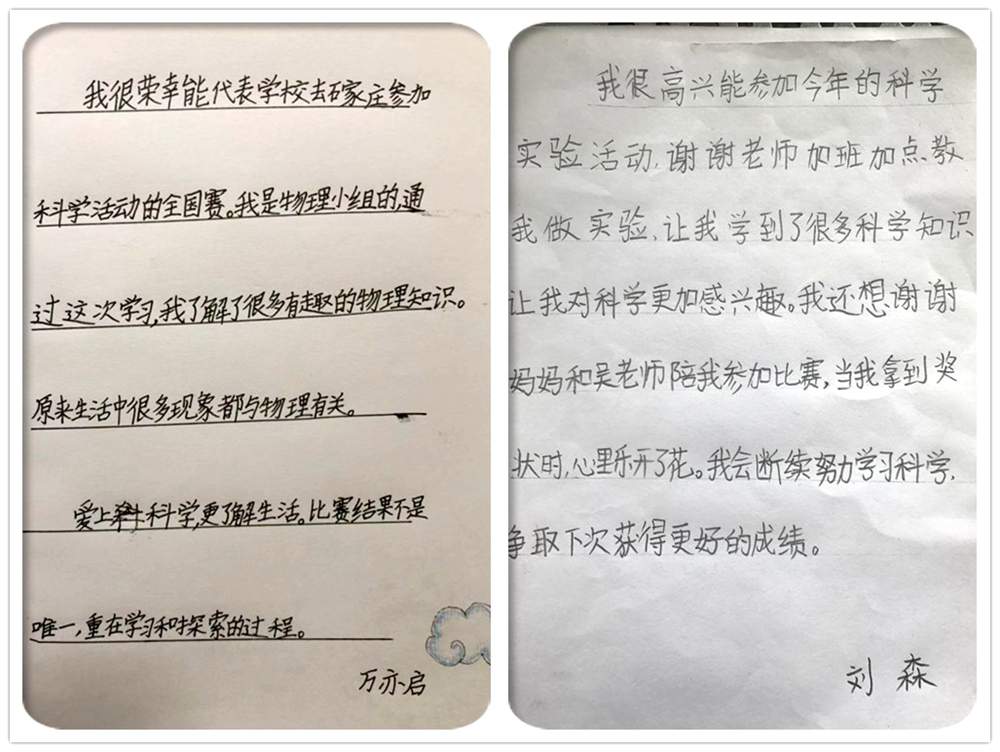 我很荣幸能代表学校去石家庄参加
科学活动的全国赛。我是物理小组的,通
过这次学习,我了解了很多有趣的物理知识。
原来生活中很多现象都与物理有关。
爱上科学,更了解生活。比赛结果不是
唯一,重在学习和探索的过程。
万亦启
我很高兴能参加今年的科学
实验活动,谢谢老师加班加点教
我做实验,让我学到了很多科学知识
让我对科学更加感兴趣。我还想谢谢
妈妈和吴老师陪我参加比赛,当我拿到奖
状时,心里乐开了花。我会断续努力学习科学,
争取下次获得更好的成绩。
刘森